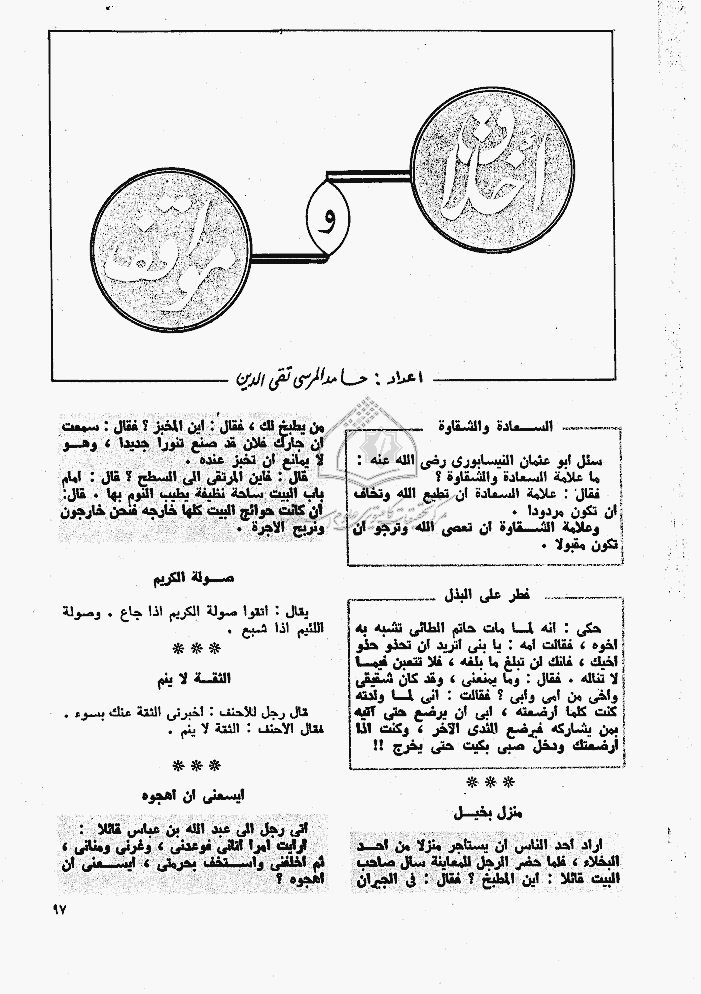 أخلاق
و
مواقف
اعداد : حامد المرسى تقى الدين
الســعادة والشقاوة
سئل ابو عثمان النيسابورى رضى الله عنه :
ما علامة السعادة والشقاوة ؟
فقال : علامة السعادة ان تطيع الله وتخاف
ان تكون مردودا .
وعلامة الشــقاوة ان تعصى الله وترجو ان
تكون مقبولا .
فطر على البذل
حكى : انه لمــا مات حاتم الطائى تشبه به
اخوه ، فقالت امه : يا بنى اتريد ان تحذو حذو
اخيك ، فانك لن تبلغ ما بلغه ، فلا تتعبن فيمــا
لا تناله . فقال : وما يمنعنى ، وقد كان شقيقى
واخى من امى وابى ؟ فقالت : انى لمــا ولدته
كنت كلما ارضعته ، ابى ان يرضع حتى آتيه
بمن يشاركه فيرضع الثدى الآخر ، وكنت اذا
ارضعتك ودخل صبى بكيت حتى يخرج !!
***
منزل بخيــل
اراد احد الناس ان يستاجر منزلا من احــد
البخلاء ، فلما حضر الرجل للمعاينة سال صاحب
البيت قائلا : اين المطبخ ؟ فقال : فى الجيران
من يطبخ لك ، فقال : اين المخبز ؟ فقال : سمعت
ان جارك فلان قد صنع تنورا جديدا ، وهــو
لا يمانع ان تخبز عنده .
قال : فاين المرتقى الى السطح ؟ قال : امام
باب البيت ساحة نظيفة يطيب النوم بها . قال:
ان كانت حوائج البيت كلها خارجه فنحن خارجون
ونربح الاجرة .
صــولة الكريم
يقال : اتقوا صولة الكريم اذا جاع . وصولة
اللئيم اذا شبع .
***
الثقــة لا ينم
قال رجل للأحنف : اخبرنى الثقة عنك بسوء .
فقال الأحنف : الثقة لا ينم .
***
ايسعنى ان اهجوه
اتى رجل الى عبد الله بن عباس قائلا :
ارايت امرا اتانى فوعدنى ، وغرنى ومنانى ،
ثم اخلفنى واســتخف بحرمتى ، ايســعنى ان
اهجوه ؟
٩٧